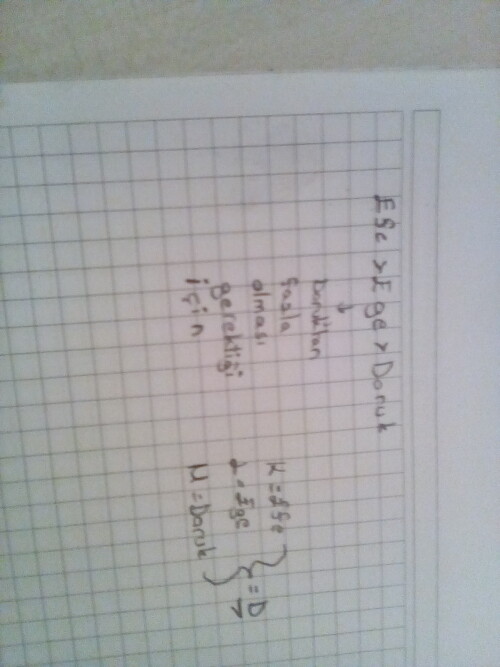 Efe > Ege > Doruk
↓
Doruktan
fazla
olması
gerektiği
için
K = Efe
L = Ege
M = Doruk
= D